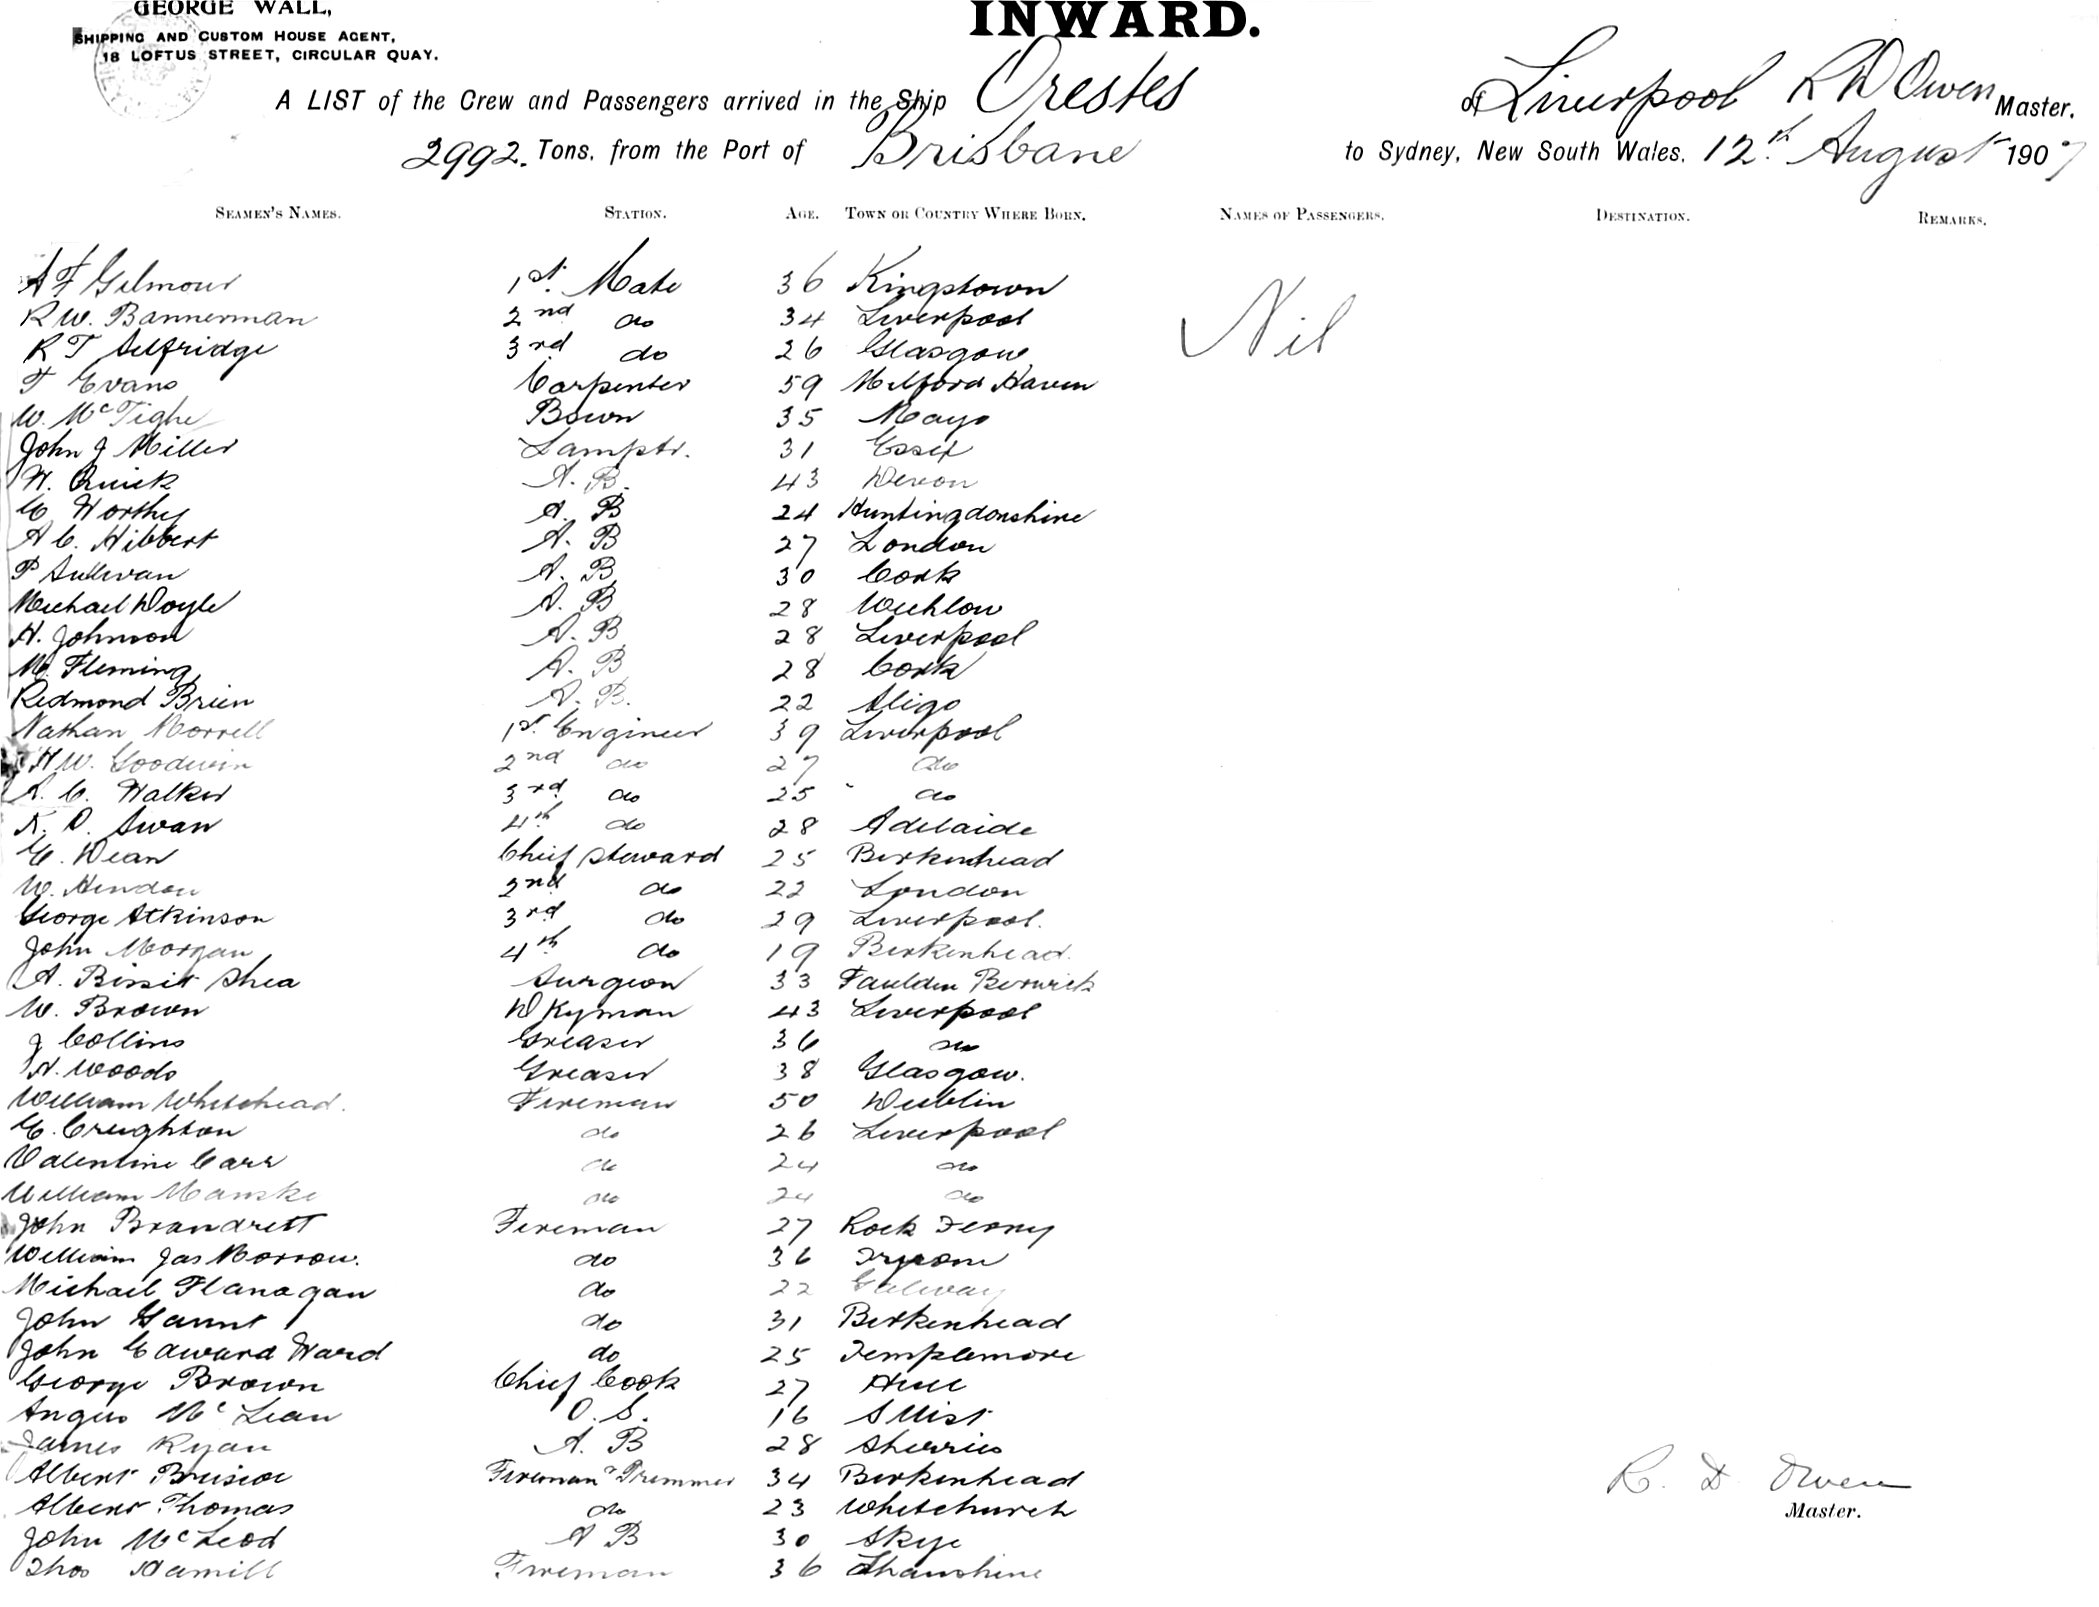 GEORGE WALL,
SHIPPING AND CUSTOM HOUSE AGENT,
18 LOFTUS STREET, CIRCULAR QUAY.
INWARD.
A LIST of the Crew and Passengers arrived in the Ship Orestes of Liverpool R D Owen Master.
2992. Tons, from the Port of Brisbane to Sydney, New South Wales, 12th August 1907
SEAMEN'S NAMES. STATION. AGE. TOWN OR COUNTRY WHERE BORN. NAMES OF PASSENGERS. DESTINATION. REMARKS.
A F Gilmour 1st. Mate 36 Kingstown Nil
R W. Bannerman 2nd do 34 Liverpool
R T Selfridge 3rd do 26 Glasgow
T Evans Carpenter 59 Milford Haven
W. McTighe Bosun 35 Mayo
John J Miller Lamptr. 31 Essex
W. Quick A. B. 43 Devon
C Worthy A. B 24 Huntingdonshire
A C. Hibbert A. B 27 London
P Sullivan A. B 30 Cork
Michael Doyle A. B 28 Wicklow
H. Johnson A. B 28 Liverpool
M. Fleming A. B 28 Cork
Redmond Brien A. B. 22 Sligo
Nathan Morrell 1st. Engineer 39 Liverpool
H W. Goodwin 2nd do 27 do
A. C. Walker 3rd do 25 do
K. D. Swan 4th do 28 Adelaide
E. Dean Chief Steward 25 Birkenhead
W. Hendon 2nd do 22 London
George Atkinson 3rd do 29 Liverpool.
John Morgan 4th do 19 Birkenhead.
A. Bissit Shea Surgeon 33 Faulden Berwick
W. Brown Dkyman 43 Liverpool
J Collins Greaser 36 do
H. Woods Greaser 38 Glasgow.
William Whitehead. Fireman 50 Dublin
E. Creighton do 26 Liverpool
Valentine Carr do 24 do
William Manske do 24 do
John Brandrett Fireman 27 Rock Ferry
William Jas Morrow. do 36 Tyrone
Michael Flanagan do 22 Galway
John Gaunt do 31 Birkenhead
John Edward Ward do 25 Templemore
George Brown Chief Cook 27 Hull
Angus McLean O. S. 16 S Uist
James Ryan A. B 28 Skerries
Albert Briscoe Fireman & Trimmer 34 Birkenhead
R. D. Owen
Albert Thomas do 23 Whitchurch
Master.
John McLeod A B 30 Skye
Thos Hamill Fireman 36